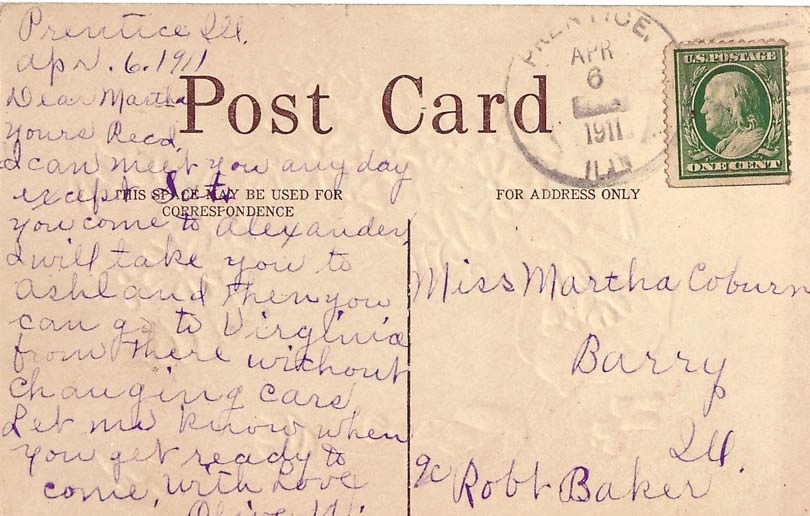 Prentice Ill.
Apr. 6. 1911
Dear Martha
Yours Recd,
I can meet you any day
except Sat
you come to Alexander
I will take you to
Ashland then you
can go to Virginia
from there without
changing cars
Let me know when
you get ready to
come, with Love
Olive
Post Card
THIS SPACE MAY BE USED FOR
CORRESPONDENCE
FOR ADDRESS ONLY
PRENTICE,
APR
6
1911
U.S. POSTAGE
ONE CENT
Miss Martha Coburn
Barry
Ill.
Robt Baker